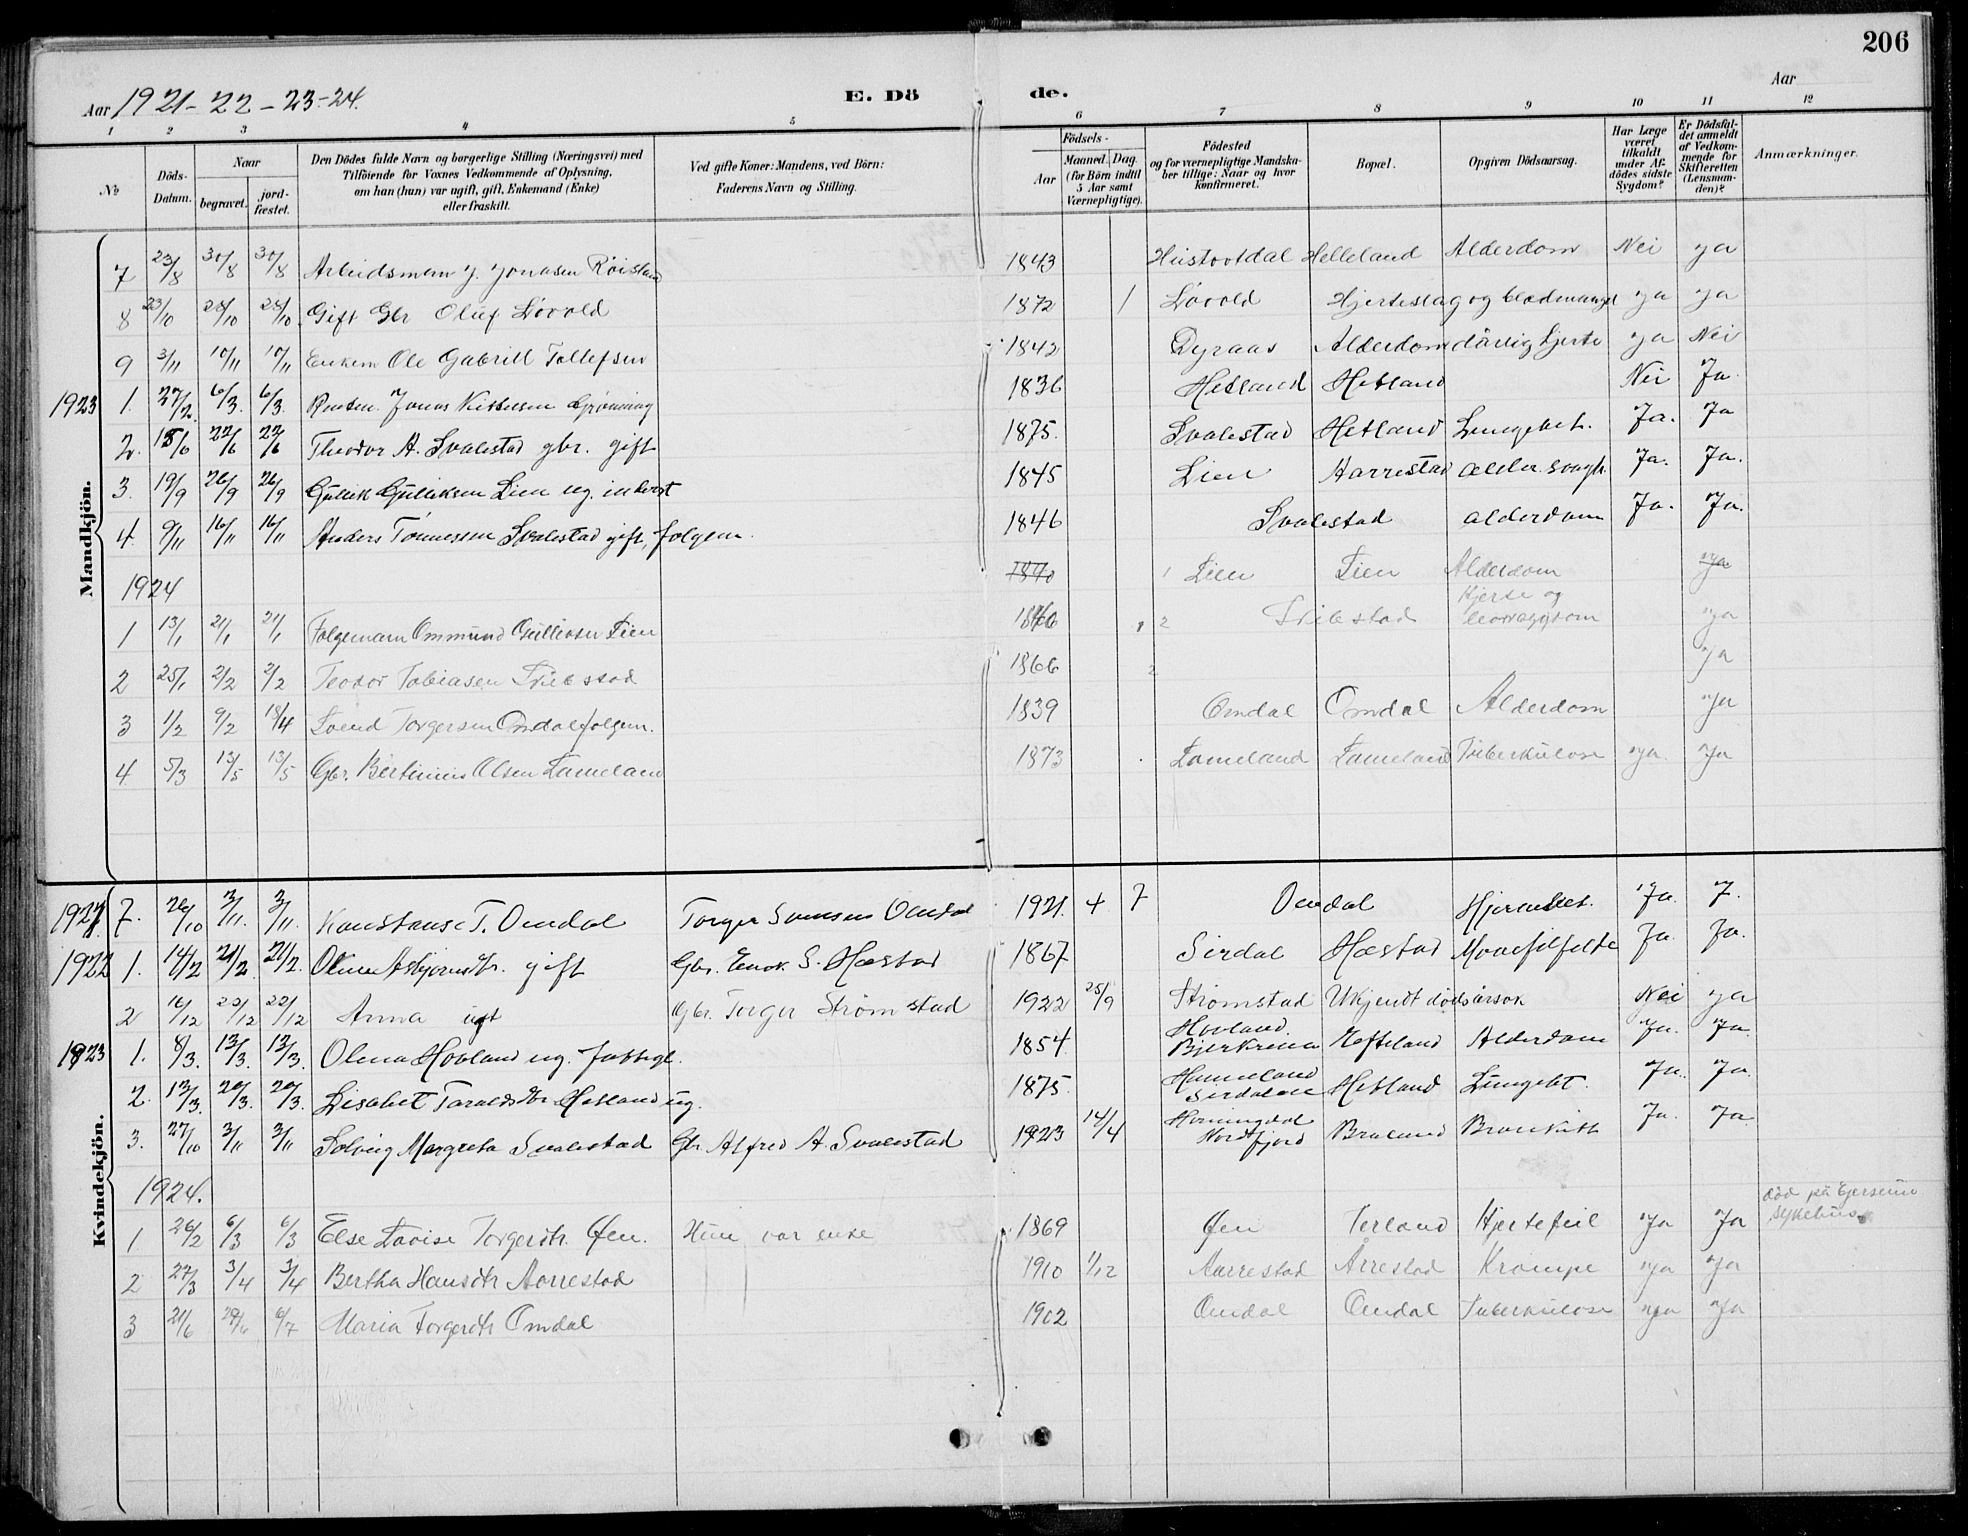 206
Aar 1921-22-23-24.
E. Dö de.
Aar
1 2 3 4 5 6 7 8 9 10 11 12
No
Döds-Datum.
Naar begravet. jordfæstet.
Den Dödes fulde Navn og borgerlige Stilling (Næringsvei) med Tilföiende for Voxnes Vedkommende af Oplysning, om han (hun) var ugift, gift, Enkemand (Enke) eller fraskilt.
Ved gifte Koner: Mandens, ved Börn: Faderens Navn og Stilling.
Födsels- Aar Maaned. Dag. (for Börn indtil 5 Aar samt Værnepligtige).
Födested og for værnepligtige Mandskaber tillige: Naar og hvor konfirmeret.
Bopæl.
Opgiven Dödsaarsag.
Har Læge været tilkaldt under Afdödes sidste Sygdom?
Er Dödsfaldet anmeldt af Vedkommende for Skifteretten (Lensmanden)?
Anmærkninger.
Mandkjön.
7 23/8 30/8 30/8 Arbeidsmann J. Jonasen Röisland 1843 Helleland Alderdom Nei ja
8 23/10 28/10 28/10 Gift Gbr Oluf Lövold 1872 1 Lövold Hjerteslag og blodmangel ja ja
9 3/11 10/11 10/11 Enkem Ole Gabriel Tollefsen 1842 Dyraas Alderdom dårlig hjerte ja Nei
1923 1. 27/2 6/3 6/3. Jonas Grönning 1836 Hetland Hetland Nei Ja.
2. 22/6 22/6 Theodor A. Svalestad gbr. gift 1875. Svalestad Hetland Lungebet. Ja. Ja
3. 19/9 26/9 26/9 Gullik Gulliksen Lien ug. inderst 1845 Lien Aarrestad Ja. Ja.
4. 9/11 16/11 16/11 Anders Tönnessen Svalestad gift, folgem. 1846 Svalestad alderdom Ja. Ja.
1924 1840 1 Lien Lien Alderdom ja
1 13/1 21/1 21/1 Folgemann Ommund Gulliksen Lien 2 Hjerte og ja
2 25/1 2/2 2/2 Teodor Tobiasen 1866 2 ja
3 1/2 9/2 18/4 Svend Torgersen Omdal folgem. 1839 Omdal Omdal Alderdom ja
4 5/3 13/5 13/5 Gbr. Bertinius Olsen Lameland 1873 Lameland Lameland Tuberkulose ja. ja
Kvindekjön.
1921. 7. 26/10 3/11. 3/11. Konstanse T. Omdal Torger Svensen Omdal 1921. 4 7 Omdal Hjernebet. Ja. J.
1922 1. 14/2 21/2. 21/2. Olene Asbjornsdtr. gift Gbr. Enok S. Hæstad 1867 Sirdal Hæstad Ja. Ja.
2 16/12 22/12 22/12 Anna ugt Gbr. Torger Strömstad 1922 25/9 Strömstad Ukjendt dödsårsak Nei ja
1923 1. 8/3. 13/3. 13/3. Olena Hovland ug. fattigl. 1854. Hovland. Bjerkreim Eefteland Alderdom Ja. Ja.
2. 13/3. 20/3. 20/3. Lisabet Taraldsdtr Hetland ug. 1875. Sirdalen Hetland Lungebt. Ja. Ja.
3. 27/10 3/11 3/11 Solveig Margreta Svalestad Gbr. Alfred A. Svalestad 1923 14/4 Hornindal Nordfjord Bronkith Ja. Ja
1924.
1 26/2 6/3 6/3 Else Lovise Torgerdtr. Öen. Hun var enke 1869 Öen Terland Hjertefeil Ja Ja död på Egersund sykehus
2 27/3 3/4 3/4 Bertha Hansdtr Aarrestad 1910 1/12 Aarrestad Årrestad Krampe ja ja
3 21/6 29/6 6/7 Maria Torgerdtr Omdal 1902 Omdal Omdal Tuberkulose ja ja